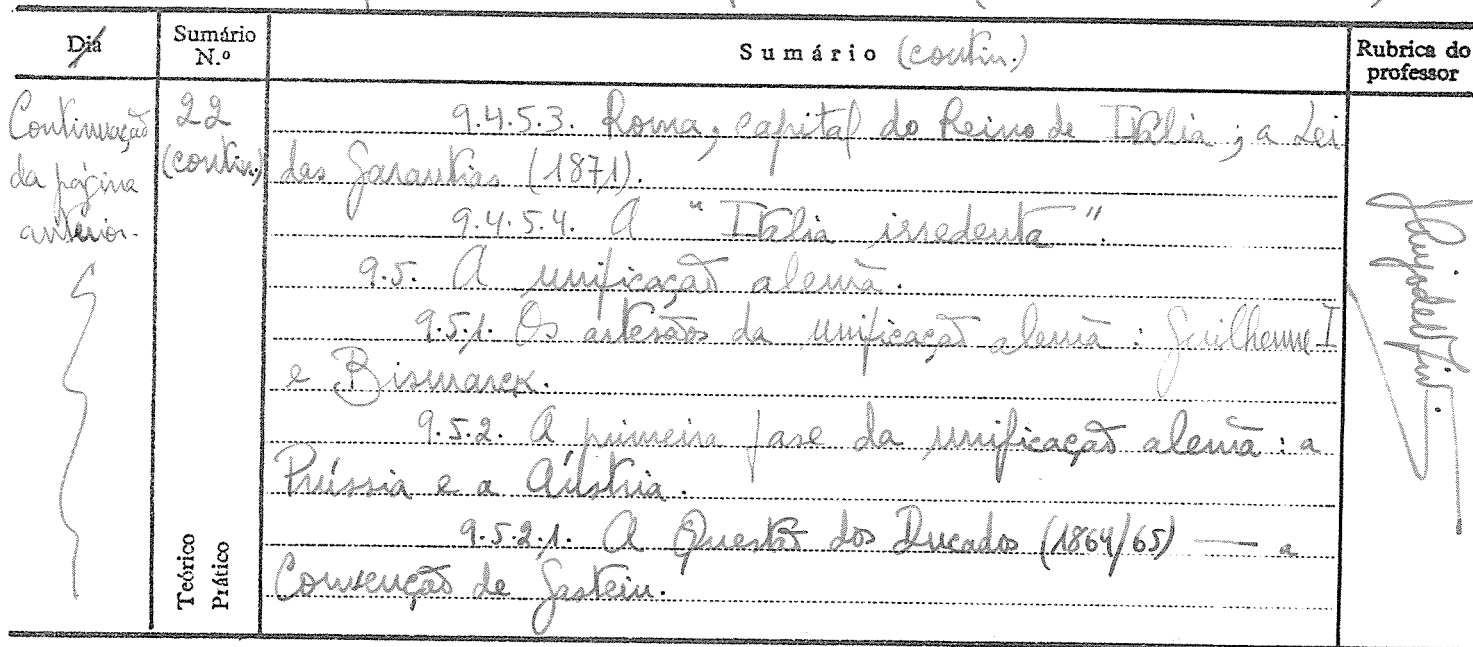 Dia
Sumário N.º
Sumário (contin.)
Rubrica do professor
Continuação
da página
anterior.
22
(contin.)
9.4.5.3. Roma, capital do Reino de Itália; a Lei
das Garantias (1871).
9.4.5.4. A "Itália irredenta".
9.5. A unificação alemã.
9.5.1. Os artesãos da unificação alemã: Guilherme I
e Bismarck.
9.5.2. A primeira fase da unificação alemã: a
Prússia e a Áustria.
9.5.2.1. A Questão dos Ducados (1864/65) — a
Convenção de Gastein.
Teórico
Prático